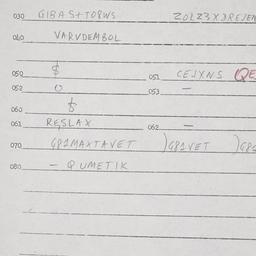 030 GIBAS+TOBWS 20LZ3XDREJEN
040 VARVDEMBOL
050 $ 051 CEJXNS QE
052 0 053 —
060
061 RESLAX 062 —
070 G81MAXTAVET )G81VET )G8
080 — QUMETIK